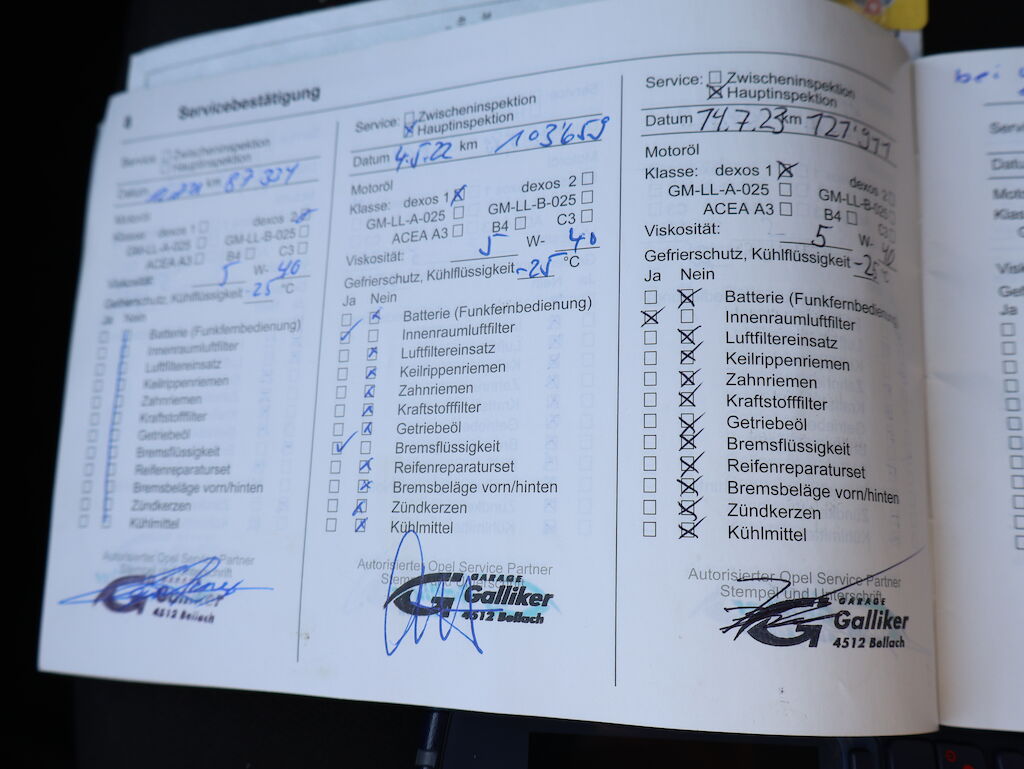 8 Servicebestätigung
Service: Zwischeninspektion
Hauptinspektion
Datum km 87'334
Motoröl
Klasse: dexos 1 dexos 2
GM-LL-A-025 GM-LL-B-025
ACEA A3 B4 C3
Viskosität: 5 W- 40
Gefrierschutz, Kühlflüssigkeit -25 °C
Ja Nein
Batterie (Funkfernbedienung)
Innenraumluftfilter
Luftfiltereinsatz
Keilrippenriemen
Zahnriemen
Kraftstofffilter
Getriebeöl
Bremsflüssigkeit
Reifenreparaturset
Bremsbeläge vorn/hinten
Zündkerzen
Kühlmittel
Autorisierter Opel Service Partner
4512 Bellach
Service: Zwischeninspektion
Hauptinspektion
Datum 4.5.22 km 103'659
Motoröl
Klasse: dexos 1 dexos 2
GM-LL-A-025 GM-LL-B-025
ACEA A3 B4 C3
Viskosität: 5 W- 40
Gefrierschutz, Kühlflüssigkeit -25 °C
Ja Nein
Batterie (Funkfernbedienung)
Innenraumluftfilter
Luftfiltereinsatz
Keilrippenriemen
Zahnriemen
Kraftstofffilter
Getriebeöl
Bremsflüssigkeit
Reifenreparaturset
Bremsbeläge vorn/hinten
Zündkerzen
Kühlmittel
Autorisierter Opel Service Partner
Stempel und Unterschrift
GARAGE
Galliker
4512 Bellach
Service: Zwischeninspektion
Hauptinspektion
Datum 14.7.23 km 121'911
Motoröl
Klasse: dexos 1 dexos 2
GM-LL-A-025 GM-LL-B-025
ACEA A3 B4 C3
Viskosität: 5 W- 40
Gefrierschutz, Kühlflüssigkeit -25 °C
Ja Nein
Batterie (Funkfernbedienung)
Innenraumluftfilter
Luftfiltereinsatz
Keilrippenriemen
Zahnriemen
Kraftstofffilter
Getriebeöl
Bremsflüssigkeit
Reifenreparaturset
Bremsbeläge vorn/hinten
Zündkerzen
Kühlmittel
Autorisierter Opel Service Partner
Stempel und Unterschrift
GARAGE
Galliker
4512 Bellach
bei
Ja